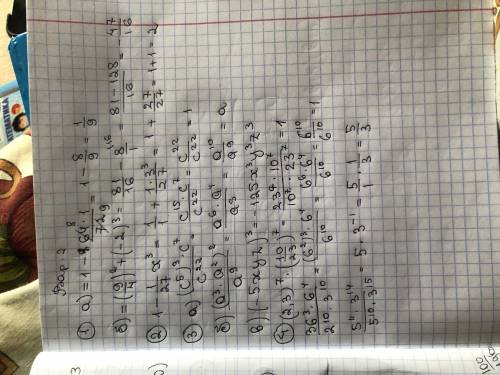 Вар 2
① а) = 1 - 64·1/729 = 1 - 8/9 = 1/9
б) = (9/4)² + (-2)³ = 81/16 - 8/1 = 81-128/16 = -47/16
② 1 - 1/27 x³ = 1/1 + 1·3³/27 = 1 + 27/27 = 1+1 = 2
③ а) (c⁵)³·c⁷/c²² = c¹⁵·c⁷/c²² = c²²/c²² = 1
б) (a³·a²)²/a⁹ = a⁶·a⁴/a⁹ = a¹⁰/a⁹ = a
в) (-5xyz)³ = -125x³y³z³
④ (2,3)⁷·(10/23)⁷ = 23⁷·10⁷/10⁷·23⁷ = 1
36³·6⁴/2¹⁰·3¹⁰ = (6²)³·6⁴/6¹⁰ = 6⁶·6⁴/6¹⁰ = 6¹⁰/6¹⁰ = 1
5¹¹·3¹⁴/5¹⁰·3¹⁵ = 5·3⁻¹ = 5/1·1/3 = 5/3